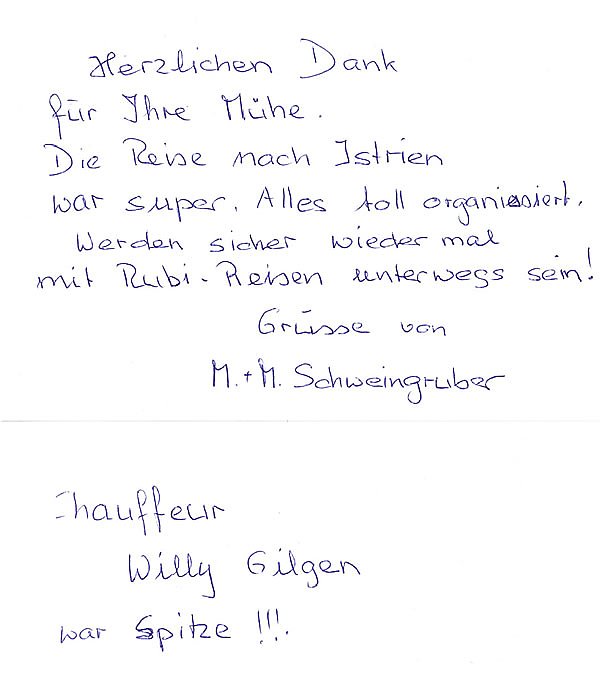 Herzlichen Dank
für Ihre Mühe.
Die Reise nach Istrien
war super. Alles toll organisiert.
Werden sicher wieder mal
mit Rubi-Reisen unterwegs sein!
Grüsse von
M. + M. Schweingruber
Chauffeur
Willy Gilgen
war Spitze !!!